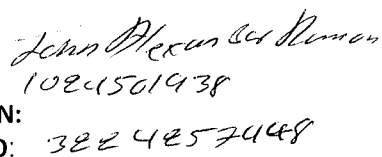 John Alexander
1024501938
N:
O: 3224257448